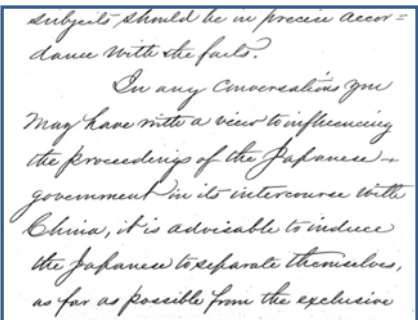 subjects should be in precise accor=
dance with the facts.
In any conversations you
may have with a view to influencing
the proceedings of the Japanese
government in its intercourse with
China, it is advisable to induce
the Japanese to separate themselves,
as far as possible from the exclusive